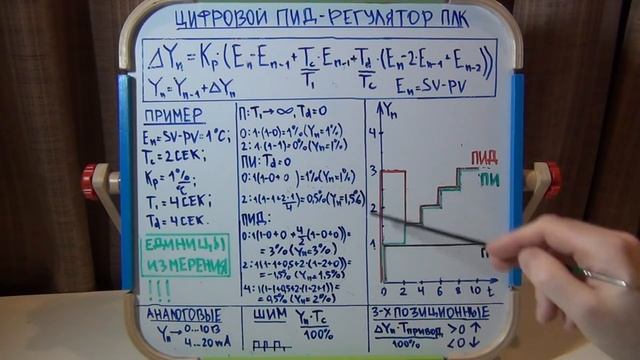 ЦИФРОВОЙ ПИД-РЕГУЛЯТОР ПЛК
ΔYn=Kp·(En-En-1+Tc/Ti·En-1+Td/Tc·(En-2·En-1+En-2))
Yn=Yn-1+ΔYn
En=SV-PV
ПРИМЕР
En=SV-PV=1°C;
Tc=2СЕК;
Kp=1%/°C;
Ti=4СЕК;
Td=4СЕК.
ЕДИНИЦЫ
ИЗМЕРЕНИЯ
!!!
П: Ti→∞, Td=0
0:1·(1-0)=1%(Yn=1%)
2:1·(1-1)=0%(Yn=1%)
ПИ: Td=0
0:1·(1-0+0)=1%(Yn=1%)
2:1·(1-1+2/4·1)=0,5%(Yn=1,5%)
ПИД:
0:1(1-0+0+4/2(1-0+0))=
=3%(Yn=3%)
2:1(1-1+0,5+2·(1-2+0))=
=-1,5%(Yn=1,5%)
4:1(1-1+0,5+2·(1-2+1))=
=0,5%(Yn=2%)
Yn
4
3
2
1
ПИД
ПИ
П
0 2 4 6 8 10 t
АНАЛОГОВЫЕ
Yn→0...10В
4...20mA
ШИМ
Yn·Tc/100%
3-Х ПОЗИЦИОННЫЕ
ΔYn·Tпривод/100% >0↑
<0↓